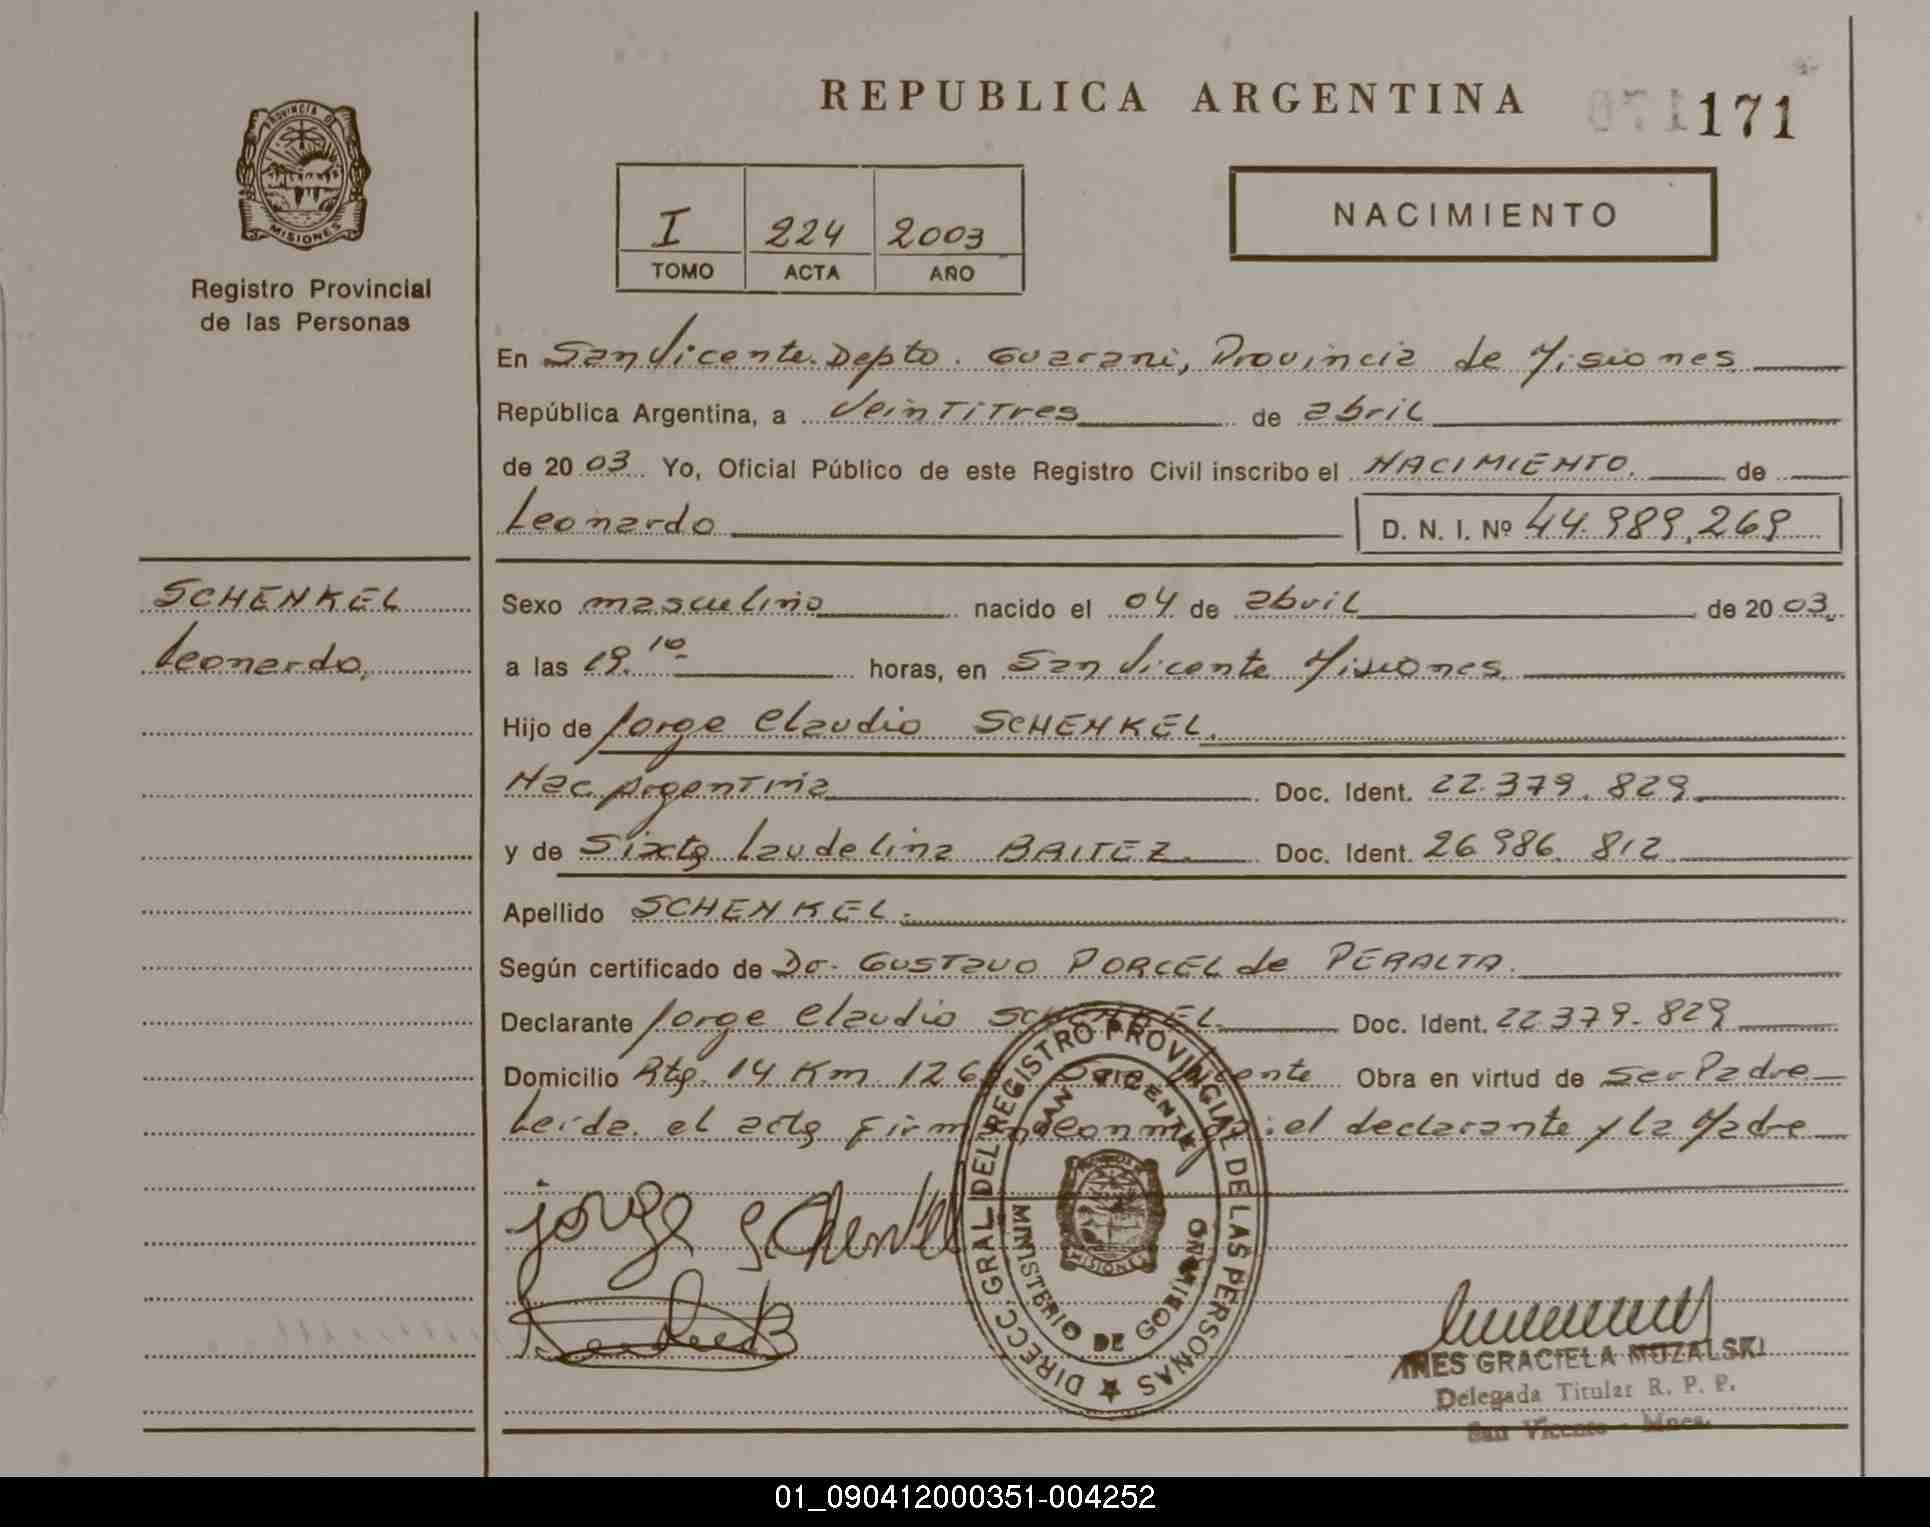 REPUBLICA ARGENTINA
171
PROVINCIA DE
MISIONES
Registro Provincial
de las Personas
I 224 2003
TOMO ACTA AÑO
NACIMIENTO
En San Vicente. Depto. Guarani, Provincia de Misiones
República Argentina, a Veintitres de abril
de 2003. Yo, Oficial Público de este Registro Civil inscribo el NACIMIENTO. de
Leonardo D. N. I. Nº 44.989.269
SCHENKEL
Leonardo,
Sexo masculino nacido el 04 de abril de 2003.
a las 19.10 horas, en San Vicente Misiones.
Hijo de Jorge Claudio SCHENKEL.
Nac. Argentina Doc. Ident. 22.379.829.
y de Sixta Laudelina BAITEZ. Doc. Ident. 26.986.812.
Apellido SCHENKEL.
Según certificado de Dr. GUSTAVO PORCEL de PERALTA.
Declarante Jorge Claudio SCHENKEL Doc. Ident. 22.379.829
Domicilio Rta. 14 Km. 126 San Vicente Obra en virtud de Ser Padre
Leida el acta firman conmigo: el declarante y la Madre
Jorge Schenkel
DIRECC. GRAL. DEL REGISTRO PROVINCIAL DE LAS PERSONAS
SAN VICENTE
MISIONES
MINISTERIO DE GOBIERNO
INES GRACIELA MUZALSKI
Delegada Titular R. P. P.
San Vicente - Mnes.
01_090412000351-004252